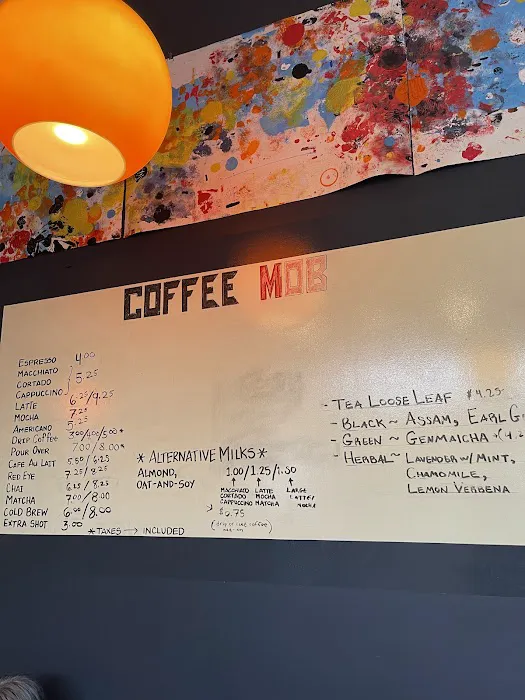 COFFEE MOB
ESPRESSO 4.00
MACCHIATO
CORTADO 5.25
CAPPUCCINO
LATTE 6.25/7.25
MOCHA 7.25
AMERICANO 5.25
DRIP COFFEE 3.00/4.00/5.00*
POUR OVER 7.00/8.00*
CAFE AU LAIT 5.50/6.25
RED EYE 7.25/8.25
CHAI 6.25/8.25
MATCHA 7.00/8.00
COLD BREW 6.00/8.00
EXTRA SHOT 3.00
*TAXES → INCLUDED
* ALTERNATIVE MILKS *
ALMOND, 1.00/1.25/1.50
OAT-AND-SOY
MACCHIATO LATTE LARGE
CORTADO MOCHA LATTE/
CAPPUCCINO MATCHA MOCHA
$0.75
- TEA LOOSE LEAF $4.25
- BLACK ~ ASSAM, EARL G
- GREEN ~ GENMAICHA
- HERBAL ~ LAVENDER W/MINT,
CHAMOMILE,
LEMON VERBENA